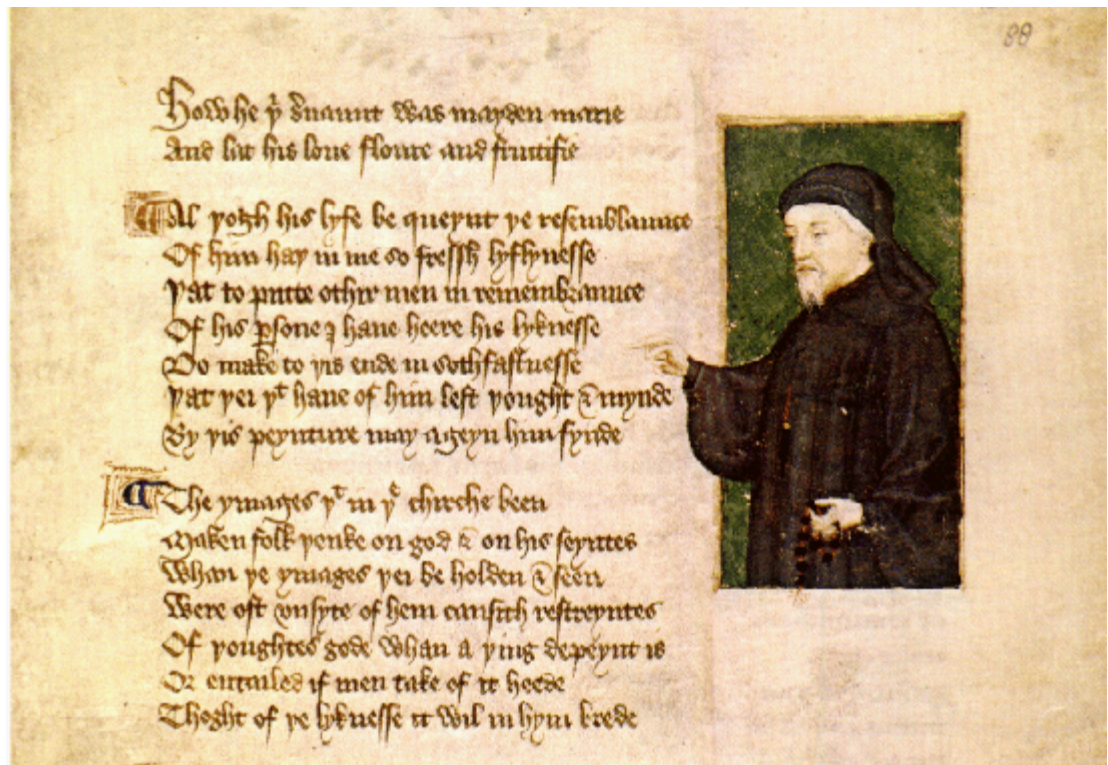 88
How he yͭ s̉uaunt was mayden marie
And lat his loue floure and fructifie
Al yogh his lyfe be queynt ye resemblaunce
Of him hay in me so fressh lyflynesse
Yat to putte othir men in remembraunce
Of his ꝑsone I haue heere his lyknesse
Do make to yis ende in sothfastnesse
Yat yei yͭ haue of him left yought & mynde
By yis peynture may ageyn him fynde
The ymages yͭ in yͤ chirche been
Maken folk yenke on god & on his seyntes
Whan ye ymages yei be holden & seen
Were oft vnsyte of hem causith restreyntes
Of youghtes gode whan a ying depeynt is
Or entailed if men take of it heede
Thoght of ye lyknesse it wil in hym brede